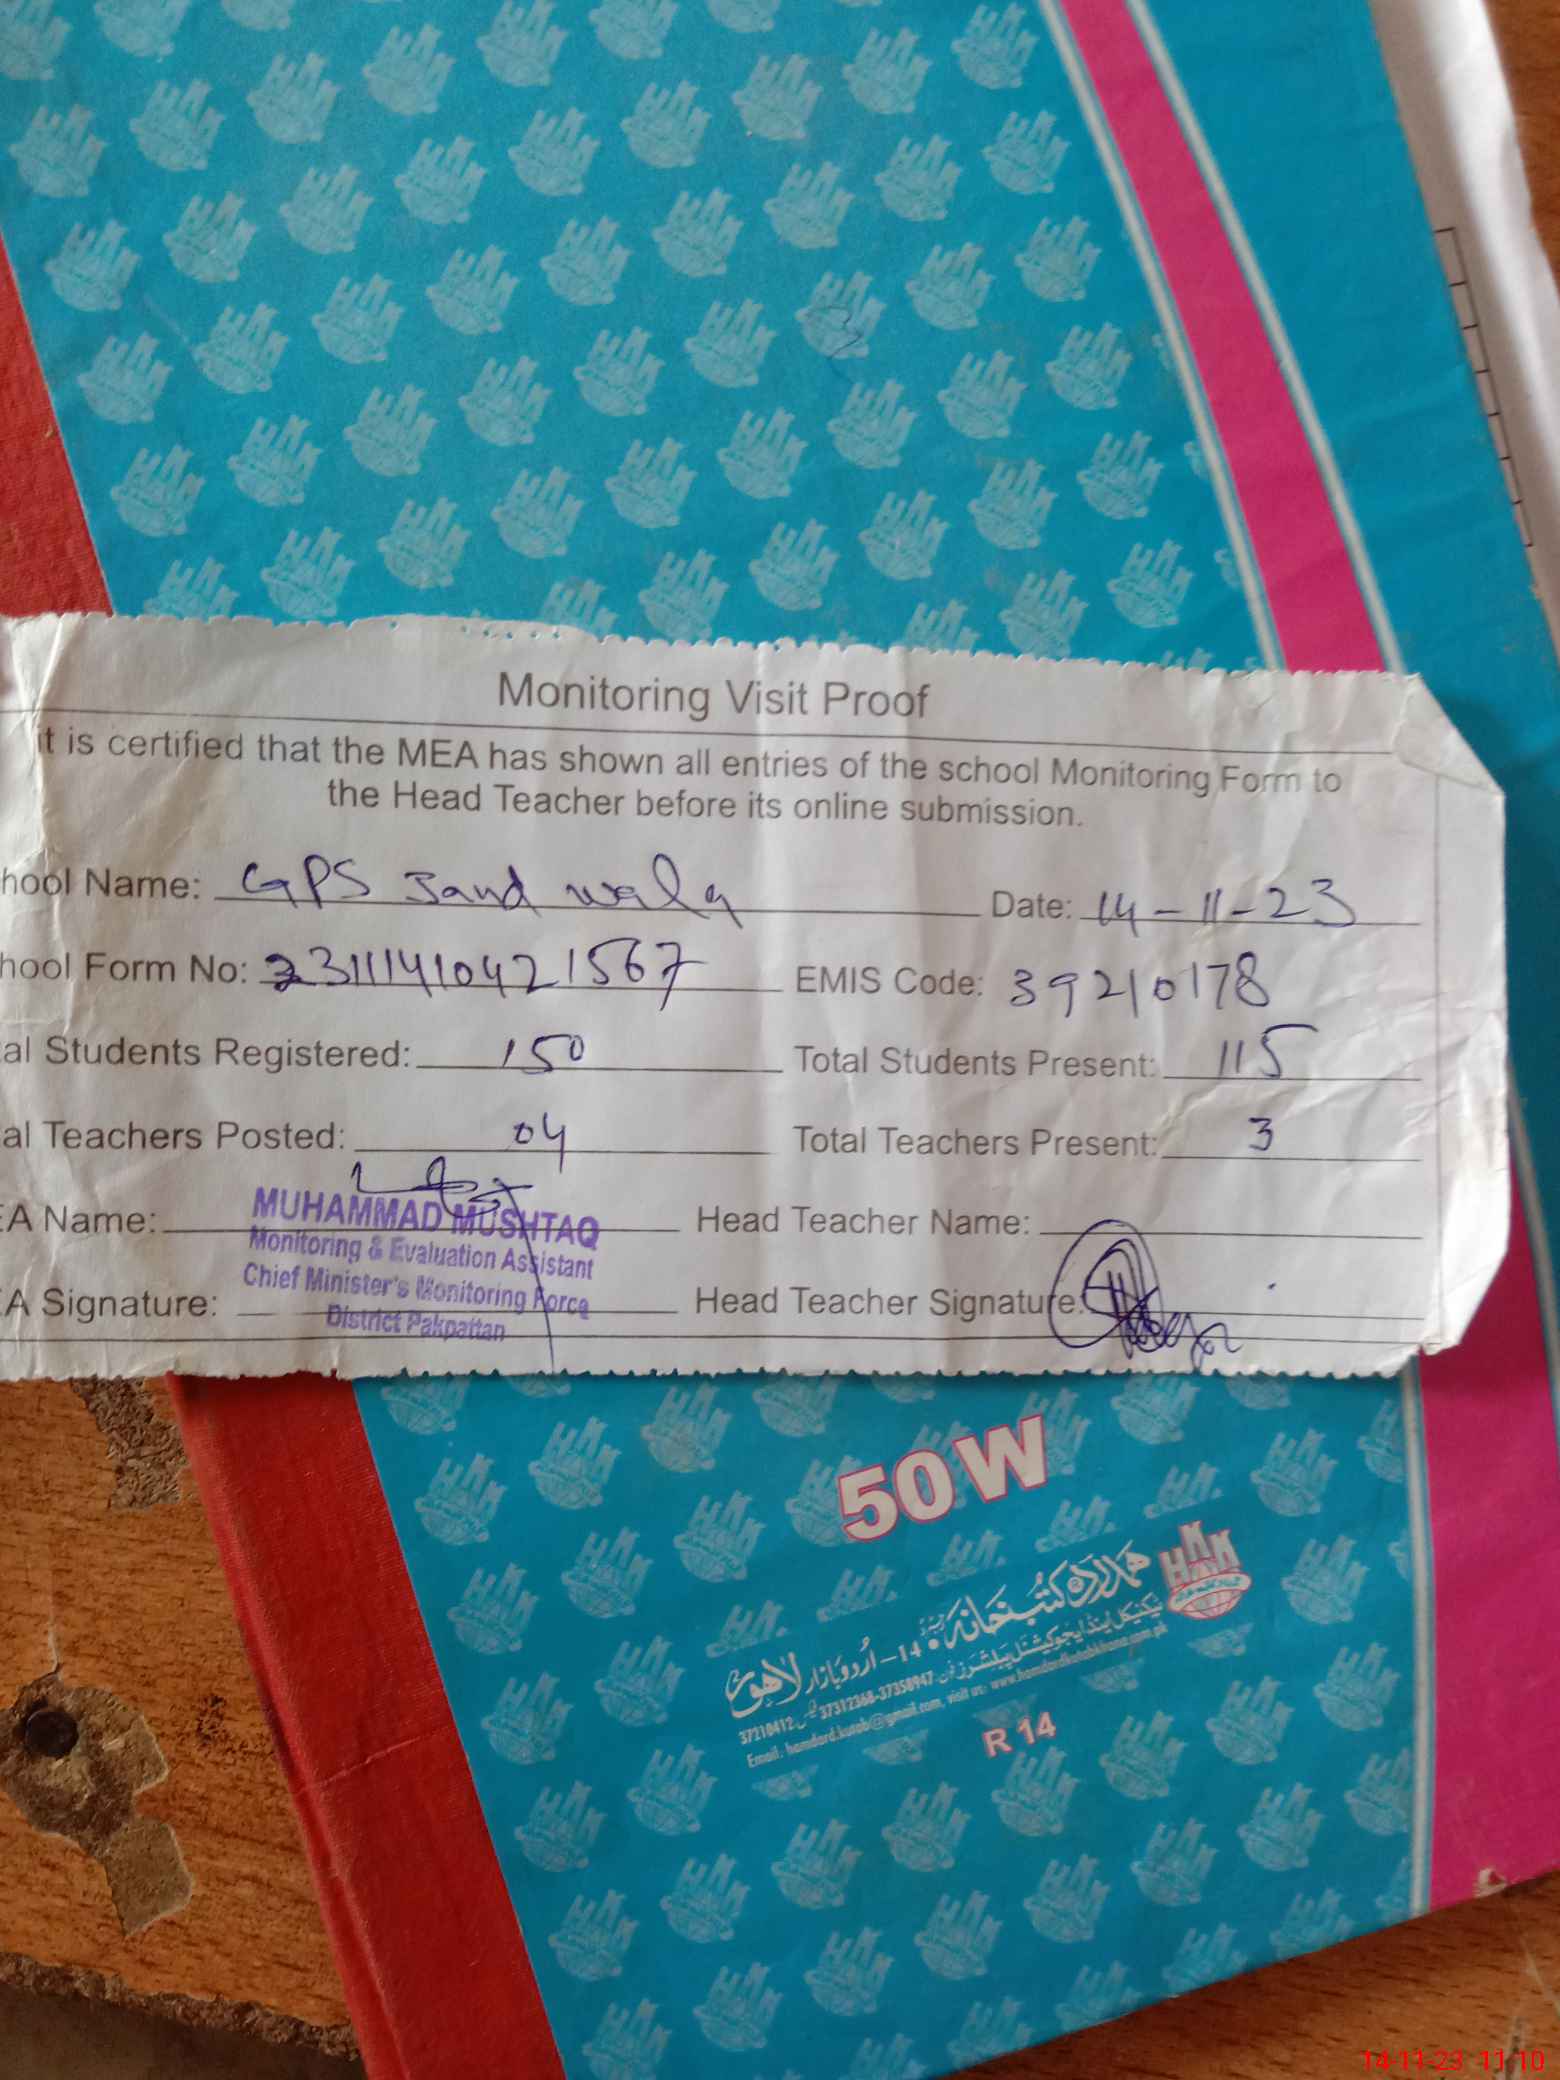 Monitoring Visit Proof
it is certified that the MEA has shown all entries of the school Monitoring Form to
the Head Teacher before its online submission.
hool Name: GPS Jand wala Date: 14-11-23
hool Form No: 231114104421567 EMIS Code: 39210178
al Students Registered: 150 Total Students Present: 115
al Teachers Posted: 04 Total Teachers Present: 3
EA Name: Head Teacher Name:
MUHAMMAD MUSHTAQ
Monitoring & Evaluation Assistant
Chief Minister's Monitoring Force
District Pakpattan
A Signature: Head Teacher Signature:
50 W
ہمدرد کتب خانہ
ٹیکنیکل اینڈ ایجوکیشنل پبلشرز
14- اُردو بازار لاہور
37210412 فیکس 37312368-37350947 فون
Email: hamdard.kutab@gmail.com, visit us: www.hamdardkutabkhana.com.pk
HKK
R 14
14-11-23 11:10